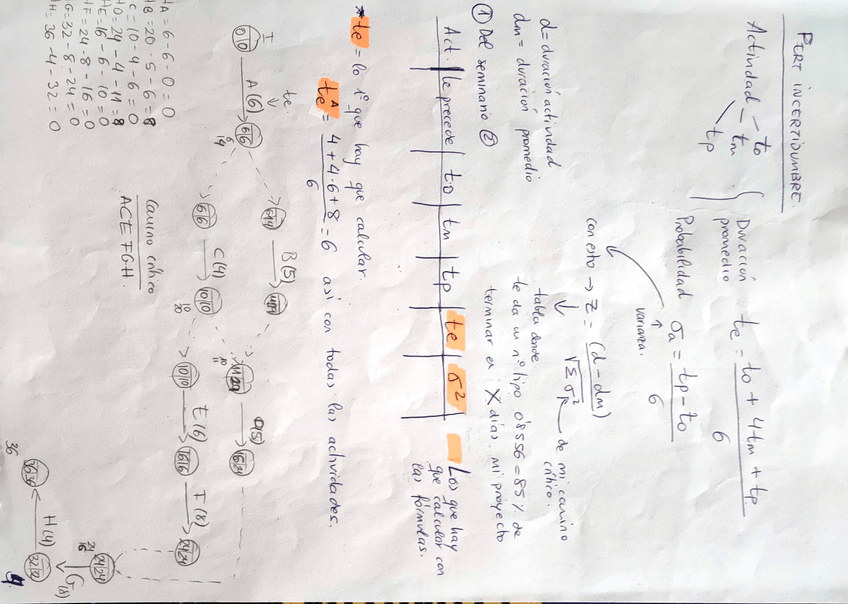 PERT INCERTIDUMBRE.
Actividad — to
tm
tp
Duración promedio te = to + 4tm + tp / 6
Probabilidad σa = tp - to / 6
varianza.
d = duración actividad
dm = duración promedio
con esto → Z = (d - dm) / √Σσ² de mi camino crítico.
tabla donde
te da un nº tipo 0'8556 = 85% de
terminar en X días, mi proyecto
① Del seminario ②
Act | le precede | to | tm | tp | te | σ²
Los que hay
que calcular con
las fórmulas.
* te = lo 1º que hay que calcular.
te A = 4 + 4·6 + 8 / 6 = 6 así con todas las actividades.
I
te.
0|0
A(6)
6|6
6
14
B(5)
6|6
C(4)
10|10
10
20
D(5)
10|10
E(6)
16|16
F(8)
24|24
24|24
24
16
G(8)
32|32
H(4)
36
Camino crítico
ACEFGH.
A = 6 - 6 - 0 = 0
B = 20 - 5 - 6 = 8
C = 10 - 4 - 6 = 0
D = 24 - 4 - 11 = 8
E = 16 - 6 - 10 = 0
F = 24 - 8 - 16 = 0
G = 32 - 8 - 24 = 0
H = 36 - 4 - 32 = 0